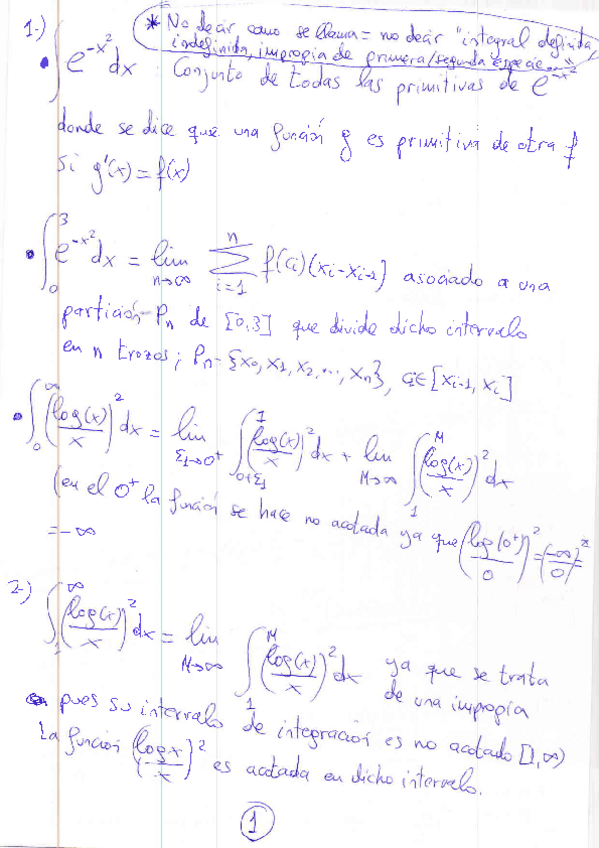 1-) * No decir como se llama = no decir "integral definida,
indefinida, impropia de primera/segunda especie..."
• ∫ e^{-x²} dx : Conjunto de todas las primitivas de e^{-x²}
donde se dice que una función g es primitiva de otra f
si g'(x) = f(x)
• ∫_0^3 e^{-x²} dx = lim_{n→∞} ∑_{i=1}^n f(ci)(xi-xi-1) asociado a una
partición Pn de [0,3] que divide dicho intervalo
en n trozos; Pn = {x0, x1, x2, ..., xn}, ci∈[xi-1, xi]
• ∫_0^∞ (log(x)/x)² dx = lim_{ε1→0+} ∫_{0+ε1}^1 (log(x)/x)² dx + lim_{M→∞} ∫_1^M (log(x)/x)² dx
(en el 0+ la función se hace no acotada ya que (log(0+)/0)² = (-∞/0)² =
= -∞
2-) ∫_1^∞ (log(x)/x)² dx = lim_{M→∞} ∫_1^M (log(x)/x)² dx ya que se trata
de una impropia
pues su intervalo de integración es no acotado [1,∞)
La función (log x/x)² es acotada en dicho intervalo.
1